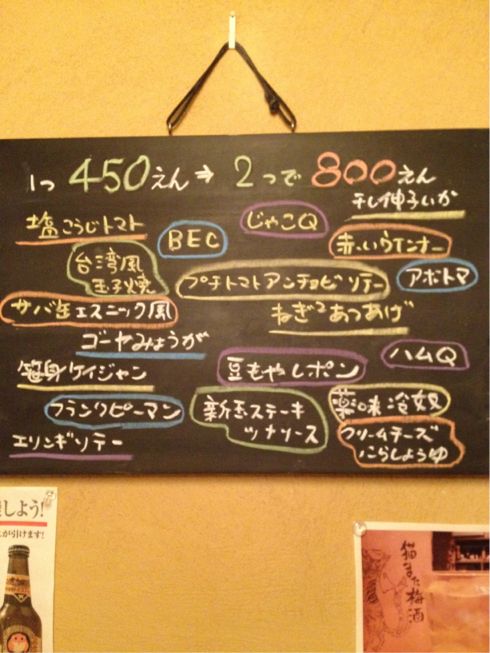 1つ 450えん ⇒ 2つで 800えん
干し伸子いか
塩こうじトマト
BEC
じゃこQ
赤いウインナー
台湾風
玉子焼
プチトマトアンチョビソテー
アボトマ
サバ缶エスニック風
ねぎ²あつあげ
ゴーヤみょうが
笹身ケイジャン
豆もやしポン
ハムQ
フランクピーマン
新玉ステーキ
ツナソース
薬味冷奴
エリンギソテー
クリームチーズ
にらしょうゆ
しよう!
が引けます!
猫また梅酒